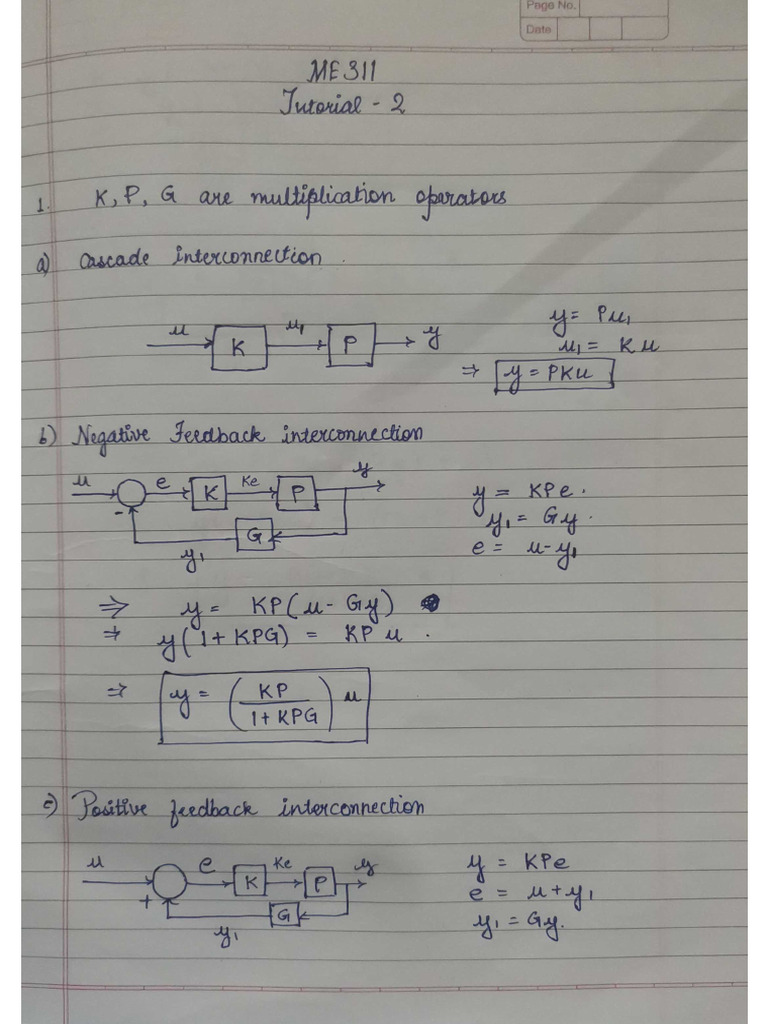 Page No.
Date
ME311
Tutorial - 2
1. K, P, G are multiplication operators
a) Cascade interconnection.
u K u₁ P y
y = Pu₁
u₁ = Ku
⇒ y = PKu
b) Negative Feedback interconnection
u e K Ke P y
- G
y₁
y = KPe.
y₁ = Gy.
e = u-y₁
⇒ y = KP(u - Gy)
⇒ y(1 + KPG) = KP u.
⇒ y = (KP / 1 + KPG) u
c) Positive feedback interconnection
u e K Ke P y
+ G
y₁
y = KPe
e = u + y₁
y₁ = Gy.